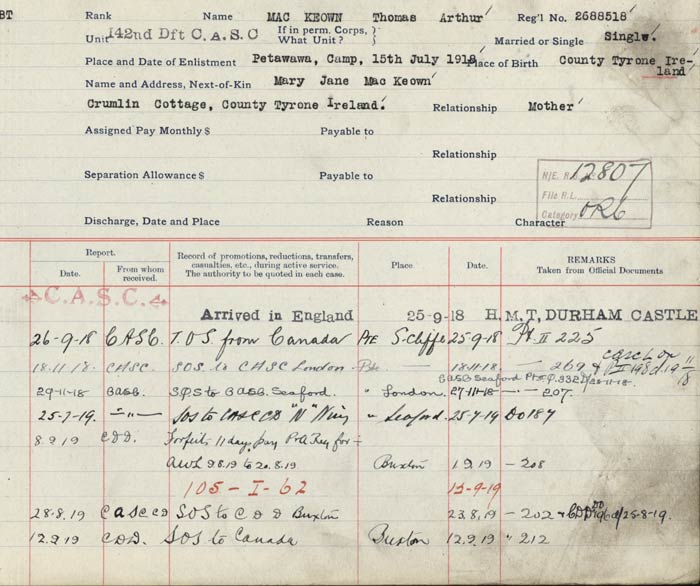 BT Rank Name MAC KEOWN Thomas Arthur Reg'l No. 2688518
Unit 142nd Dft C.A.S.C If in perm. Corps, What Unit? Married or Single Single.
Place and Date of Enlistment Petawawa, Camp, 15th July 1918 Place of Birth County Tyrone Ire-
land
Name and Address, Next-of-Kin Mary Jane Mac Keown
Crumlin Cottage, County Tyrone Ireland. Relationship Mother
Assigned Pay Monthly $ Payable to
Relationship
Separation Allowance $ Payable to
Relationship
H/E. R. 12807
File R.L.
Category OR6
Discharge, Date and Place Reason Character
Report. Record of promotions, reductions, transfers, casualties, etc., during active service. The authority to be quoted in each case. Place. Date. REMARKS Taken from Official Documents
Date. From whom received.
C.A.S.C.
Arrived in England 25-9-18 H.M.T, DURHAM CASTLE
26-9-18 CASC. T.O.S. from Canada Pte S-cliffe 25-9-18 Pt II 225
18-11-18. CASC. SOS to CASC London. Pte — 18-11-18 — 269
CASC Seaford Pt 332
29-11-18 SOS to Seaford. " London. 27-11-18 — 207.
25-7-19. —"— SOS to CASC CD "N" Wing " Seaford. 25-7-19 DO 187
8.9.19 CDD. Forfeits 11 days pay for
AWL 9.8.19 to 20.8.19 Buxton 1.9.19 — 208
105 - I - 62 13-9-19
28.8.19 CASC CD SOS to CDD Buxton 23.8.19 — 202 25-8-19.
12.9.19 CDD. SOS to Canada Buxton 12.9.19 " 212